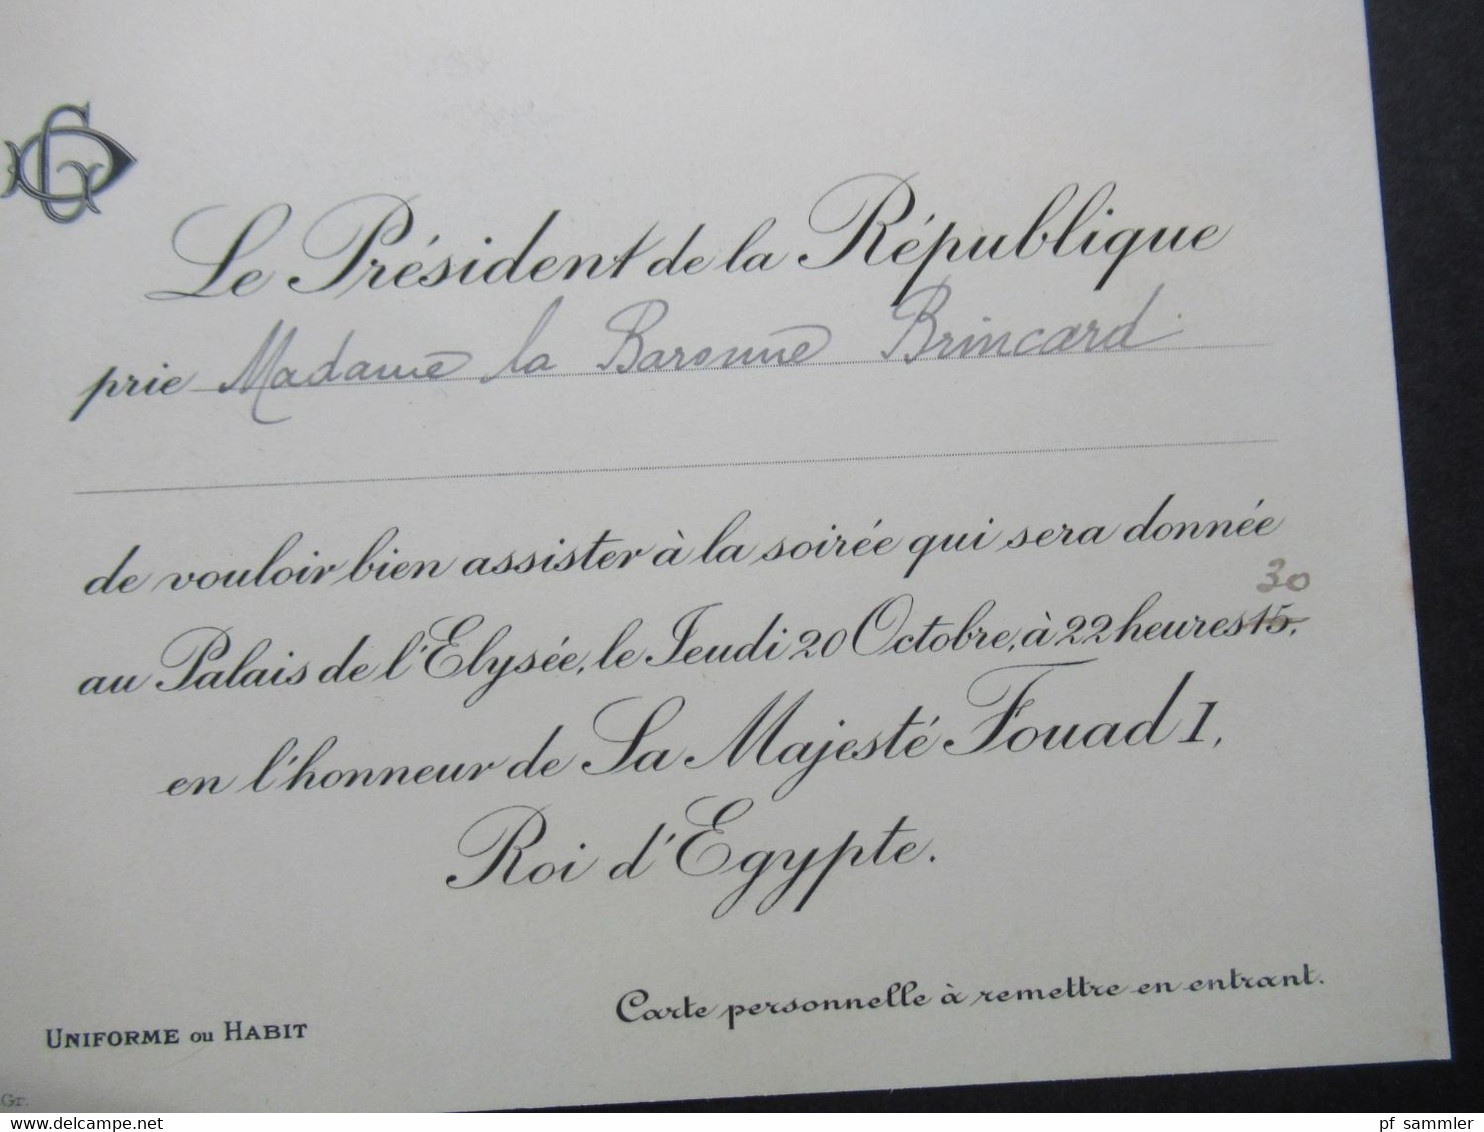 GD
Le Président de la République
prie Madame la Baronne Brincard
de vouloir bien assister à la soirée qui sera donnée
30
au Palais de l'Elysée, le Jeudi 20 Octobre, à 22 heures 15,
en l'honneur de Sa Majesté Fouad I,
Roi d'Egypte.
Carte personnelle à remettre en entrant.
UNIFORME OU HABIT
Gr.
www.delcampe.net
pf_sammler